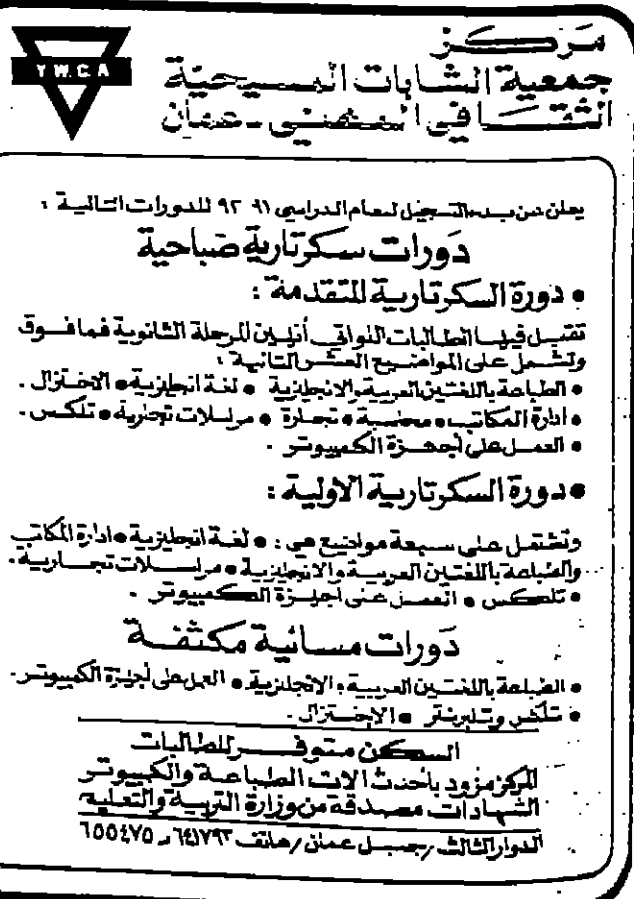 Y.W.C.A
مركز
جمعية الشابات المسيحية
الثقافي المهني - عمان
يعلن عن بدء التسجيل لعام الدراسي ٩١ ٩٢ للدورات التالية :
دورات سكرتارية صباحية
• دورة السكرتارية المتقدمة :
تقبل فيها الطالبات اللواتي أنهين المرحلة الثانوية فما فوق
وتشمل على المواضيع العشر التالية :
• الطباعة باللغتين العربية والانجليزية • لغة انجليزية • الاختزال .
• ادارة المكاتب • محاسبة • تجارة • مراسلات تجارية • تلكس .
• العمل على أجهزة الكمبيوتر .
• دورة السكرتارية الأولية :
وتشتمل على سبعة مواضيع هي : • لغة انجليزية • ادارة المكاتب
والطباعة باللغتين العربية والانجليزية • مراسلات تجارية .
• تلكس • العمل على اجهزة الكمبيوتر .
دورات مسائية مكثفة
• الطباعة باللغتين العربية والانجليزية • العمل على أجهزة الكمبيوتر .
• تلكس وتلبرنتر • الاختزال .
السكن متوفر للطالبات
المركز مزود بأحدث الات الطباعة والكمبيوتر
الشهادات مصدقة من وزارة التربية والتعليم
الدوار الثالث / جبل عمان / هاتف ٦٤١٧٩٣ - ٦٥٥٤٧٥